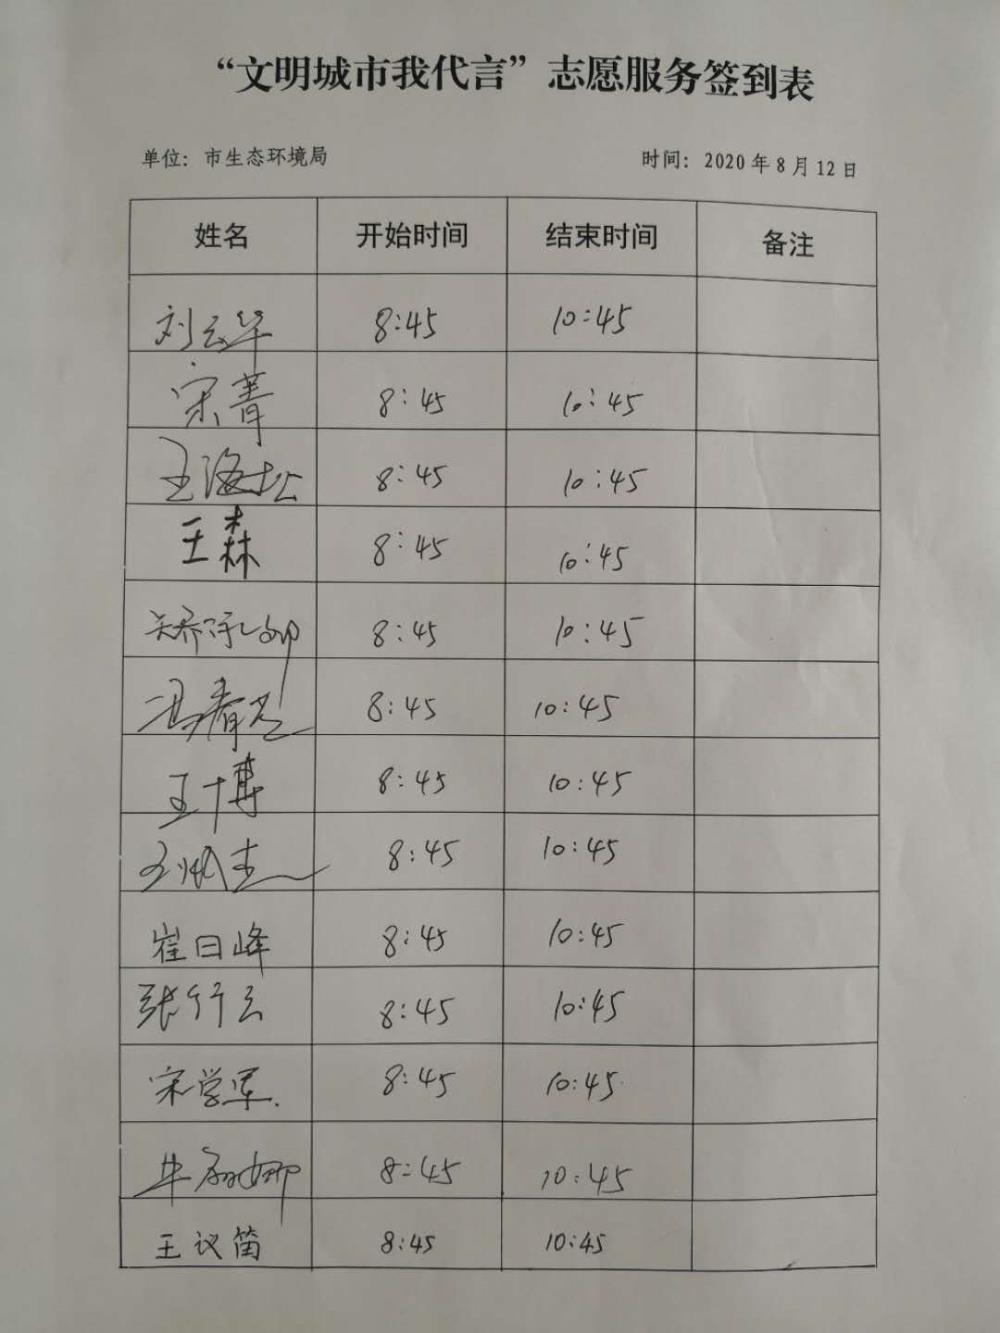 “文明城市我代言”志愿服务签到表
单位：市生态环境局 时间：2020年8月12日
姓名 开始时间 结束时间 备注
刘云华 8:45 10:45
宋菁 8:45 10:45
王海松 8:45 10:45
王森 8:45 10:45
8:45 10:45
冯春 8:45 10:45
王博 8:45 10:45
王 杰 8:45 10:45
崔曰峰 8:45 10:45
张行云 8:45 10:45
宋学军. 8:45 10:45
牛丽娜 8:45 10:45
王议笛 8:45 10:45